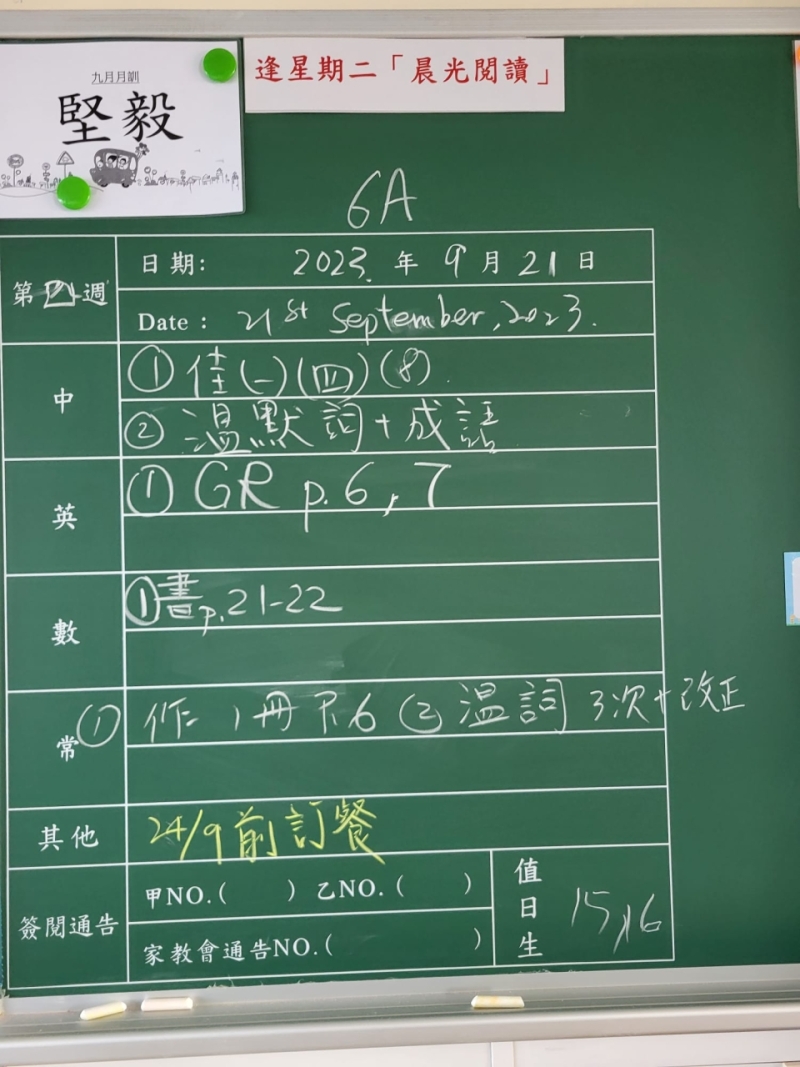 九月月訓
堅毅
逢星期二「晨光閱讀」
6A
第四週
日期: 2023 年 9 月 21 日
Date : 21st September, 2023.
中
① 佳(一)(四)(8)
② 溫默詞+成語
英
① GR p.6,7
數
①書p.21-22
常
① 作 1冊 P.6 ② 溫詞 3次+改正
其他
24/9前訂餐
簽閱通告
甲NO.( ) 乙NO.( )
家教會通告NO.( )
值日生
15,16